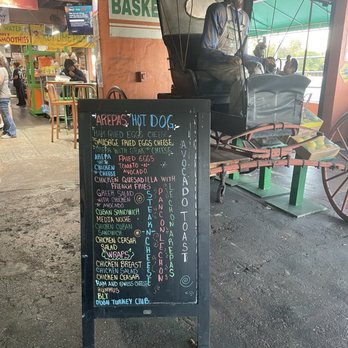 BASKE
WATER
SMOOTHIES
AREPAS HOT DOG
HAM FRIED EGGS CHEESE
SAUSAGE FRIED EGGS CHEESE
AREPA WITH STEAK & CHEESE
AREPA
CHICKEN
CHEESE
FRIED EGGS
TOMATO-N
AVOCADO
CHICKEN QUESADILLA WITH
FRENCH FRIES
GREEK SALAD
WITH CHICKEN
AVOCADO
CUBAN SANDWICH
MEDIA NOCHE
CHICKEN CUBAN
SANDWICH
CHICKEN CEASAR
SALAD
WRAPS
CHICKEN BREAST
CHICKEN SALAD
CHICKEN CEASAR
HAM AND SWISS CHEESE
HUMMUS
BLT
TURKEY CLUB
STEAK-N-CHEESE
PAN CON LECHON
LECHON AREPAS
AVOCADO TOAST